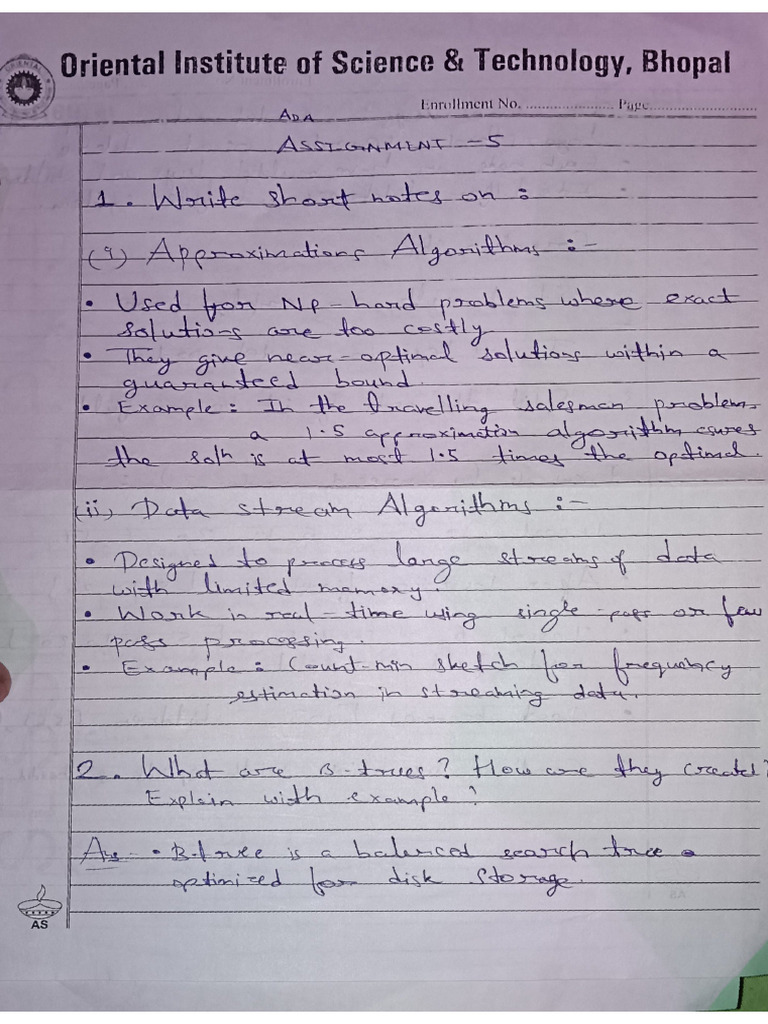 Oriental Institute of Science & Technology, Bhopal
Enrollment No. ...................... Page...........................
ADA
ASSIGNMENT - 5
1. Write short notes on :
(i) Approximations Algorithms :-
• Used for NP-hard problems where exact
solutions are too costly
• They give near-optimal solutions within a
guaranteed bound.
• Example : In the travelling salesman problem,
a 1.5 approximation algorithm
the solⁿ is at most 1.5 times the optimal.
(ii) Data stream Algorithms :-
• Designed to process large streams of data
with limited memory.
• Work in real-time using single-pass or few
pass processing.
• Example : Count-min sketch for frequency
estimation in streaming data.
2. What are B-trees? How are they created?
Explain with example?
Ans • B-tree is a balanced search tree
optimized for disk storage.
AS